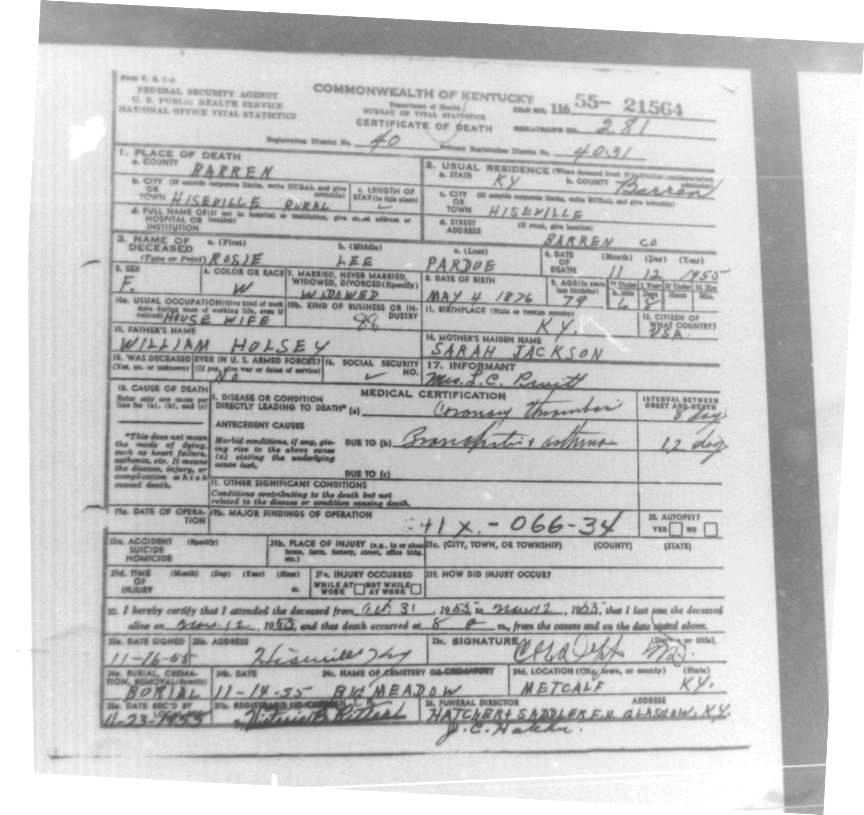 Form V. S. 1-A
FEDERAL SECURITY AGENCY
U. S. PUBLIC HEALTH SERVICE
NATIONAL OFFICE VITAL STATISTICS
COMMONWEALTH OF KENTUCKY
Department of Health
BUREAU OF VITAL STATISTICS
CERTIFICATE OF DEATH
FILE NO. 116 55- 21564
REGISTRAR'S NO. 281
Registration District No. 40 Primary Registration District No. 4031
1. PLACE OF DEATH
a. COUNTY BARREN
2. USUAL RESIDENCE (Where deceased lived. If institution: residence before admission)
a. STATE KY b. COUNTY Barren
b. CITY (If outside corporate limits, write RURAL and give township)
OR
TOWN HISEVILLE RURAL
c. LENGTH OF STAY (in this place)
c. CITY (If outside corporate limits, write RURAL and give township)
OR
TOWN HISEVILLE
d. FULL NAME OF (If not in hospital or institution, give street address or location)
HOSPITAL OR
INSTITUTION
d. STREET (If rural, give location)
ADDRESS BARREN CO
3. NAME OF DECEASED (Type or Print)
a. (First) b. (Middle) c. (Last)
ROSIE LEE PARDUE
4. DATE OF DEATH (Month) (Day) (Year)
11 12 1955
5. SEX F.
6. COLOR OR RACE W
7. MARRIED, NEVER MARRIED, WIDOWED, DIVORCED (Specify)
WIDOWED
8. DATE OF BIRTH
MAY 4 1876
9. AGE (In years last birthday) 79
If Under 1 Year Months 6 Days 8
If Under 24 Hrs Hours Min.
10a. USUAL OCCUPATION (Give kind of work done during most of working life, even if retired) HOUSE WIFE
10b. KIND OF BUSINESS OR INDUSTRY 88
11. BIRTHPLACE (State or foreign country)
KY.
12. CITIZEN OF WHAT COUNTRY?
USA.
13. FATHER'S NAME
WILLIAM HOLSEY
14. MOTHER'S MAIDEN NAME
SARAH JACKSON
15. WAS DECEASED EVER IN U. S. ARMED FORCES?
(Yes, no, or unknown) (If yes, give war or dates of service)
NO
16. SOCIAL SECURITY NO.
17. INFORMANT
Mrs. L. C. Pruitt
18. CAUSE OF DEATH
Enter only one cause per line for (a), (b), and (c)
MEDICAL CERTIFICATION
INTERVAL BETWEEN ONSET AND DEATH
I. DISEASE OR CONDITION
DIRECTLY LEADING TO DEATH* (a) Coronary thrombosis 8 days
*This does not mean the mode of dying, such as heart failure, asthenia, etc. It means the disease, injury, or complication which caused death.
ANTECEDENT CAUSES
Morbid conditions, if any, giving rise to the above cause (a) stating the underlying cause last.
DUE TO (b) Bronchitis & asthma 12 days
DUE TO (c)
II. OTHER SIGNIFICANT CONDITIONS
Conditions contributing to the death but not related to the disease or condition causing death.
19a. DATE OF OPERATION
19b. MAJOR FINDINGS OF OPERATION
41 X. - 066-34
20. AUTOPSY?
YES NO
21a. ACCIDENT (Specify)
SUICIDE
HOMICIDE
21b. PLACE OF INJURY (e.g., in or about home, farm, factory, street, office bldg., etc.)
21c. (CITY, TOWN, OR TOWNSHIP) (COUNTY) (STATE)
21d. TIME (Month) (Day) (Year) (Hour)
OF
INJURY m.
21e. INJURY OCCURRED
WHILE AT WORK NOT WHILE AT WORK
21f. HOW DID INJURY OCCUR?
22. I hereby certify that I attended the deceased from Oct 31, 1955 to Nov 12, 1955, that I last saw the deceased
alive on Nov. 12, 1955, and that death occurred at 8 a m., from the causes and on the date stated above.
23a. DATE SIGNED 11-16-55
23b. ADDRESS Hiseville Ky
23c. SIGNATURE (Degree or title)
MD.
24a. BURIAL, CREMATION, REMOVAL (Specify)
BURIAL
24b. DATE 11-14-55
24c. NAME OF CEMETERY OR CREMATORY
BIG MEADOW
24d. LOCATION (City, town, or county) (State)
METCALF KY.
25a. DATE REC'D BY
11-23-1955
25b. REGISTRAR'S
26. FUNERAL DIRECTOR ADDRESS
HATCHER & SADDLER F. H. GLASGOW, KY.
J. C. Hatcher